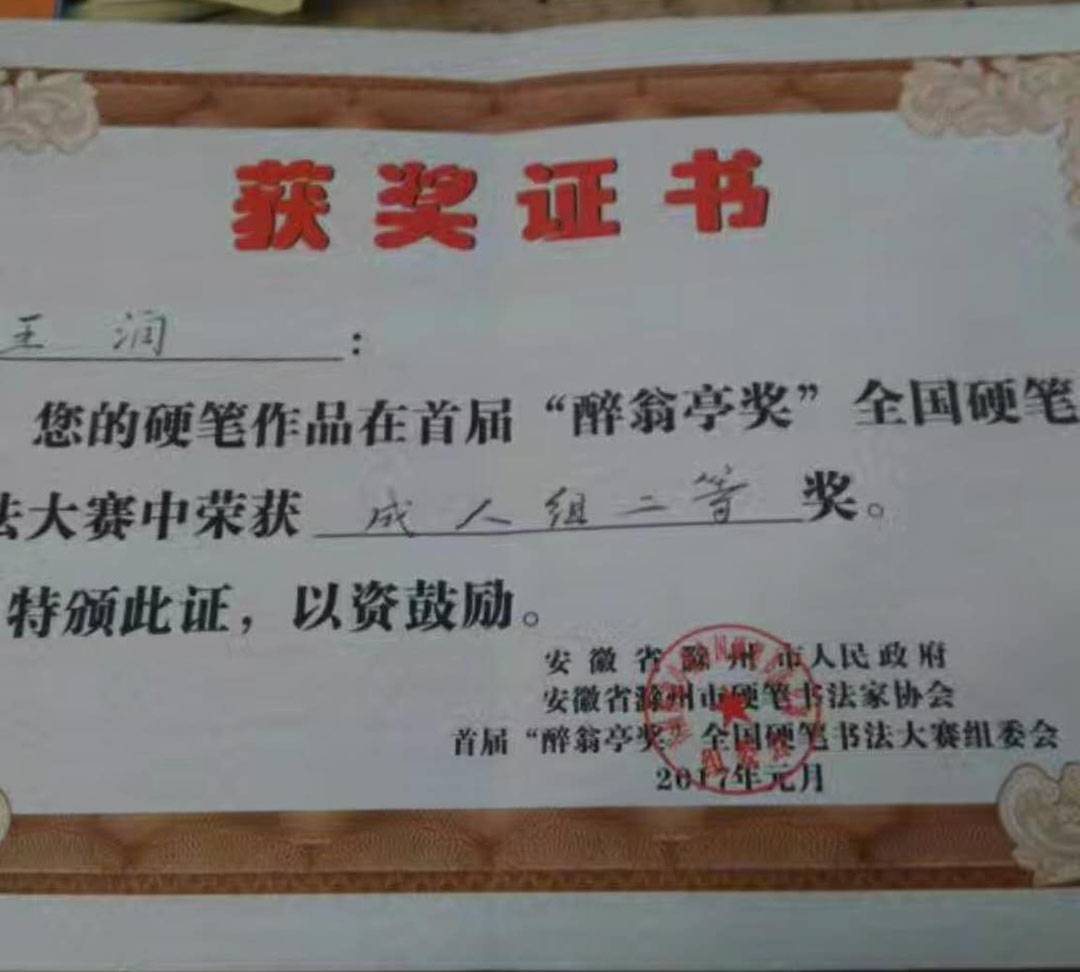 获奖证书
王润：
您的硬笔作品在首届“醉翁亭奖”全国硬笔
法大赛中荣获 成人组二等 奖。
特颁此证，以资鼓励。
安徽省滁州市人民政府
安徽省滁州市硬笔书法家协会
首届“醉翁亭奖”全国硬笔书法大赛组委会
2017年元月